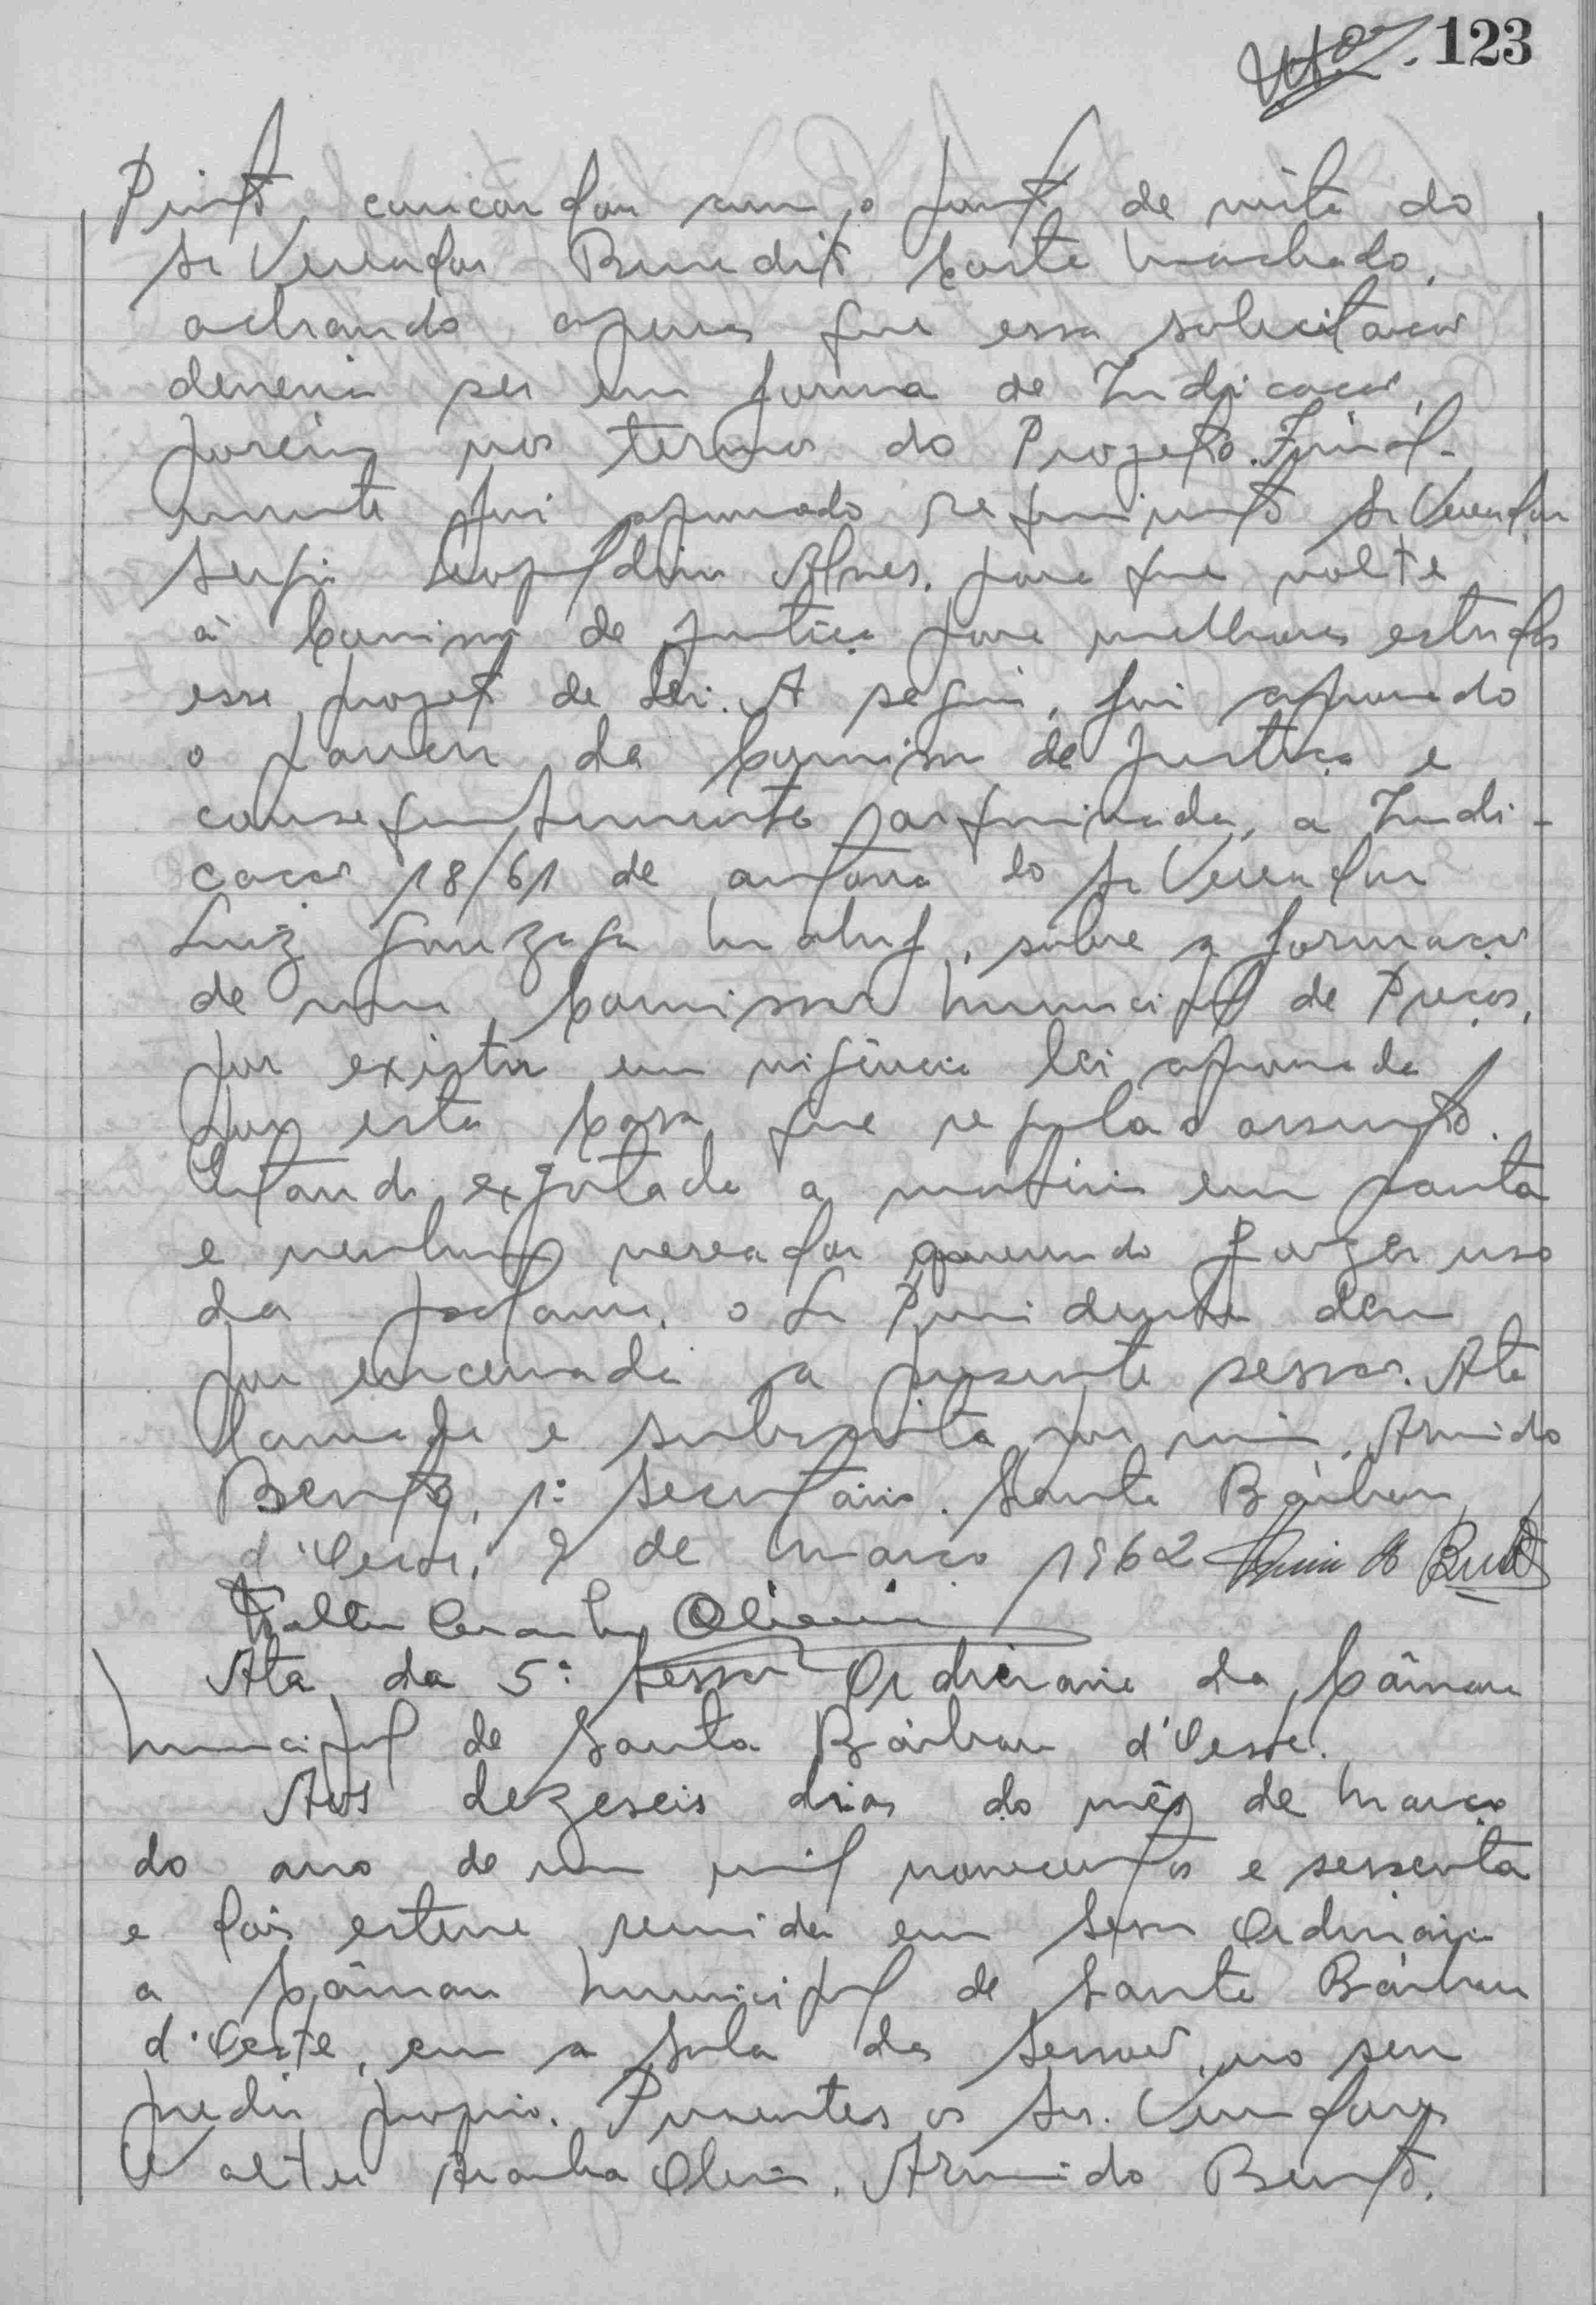 123
Pinto, concordou com o ponto de vista do
Sr Vereador Benedito Costa Machado,
achando apenas que essa solicitacao
deveria ser em forma de Indicacao,
porém nos termos do Projeto. Final-
mente foi aprovado requerimento Sr Vereador
Sergio Leopoldino Alves, para que volte
à Comissão de Justiça para melhores estudos
esse projeto de Lei. A seguir, foi aprovado
o parecer da Comissão de Justiça e
consequentemente arquivada, a Indi-
cacao 18/61 de autoria do Sr Vereador
Luiz Gonzaga Maluf, sôbre a formacao
de uma Comissao Municipal de Preços,
por existir em vigência lei aprovada
por esta Casa que regula o assunto.
Estando exgotada a matéria em pauta
e nenhum vereador querendo fazer uso
da palavra, o Sr Presidente deu
por encerrada a presente sessao. Ata
lavrada e subscrita por mim, Armindo
Bento, 1º Secretário. Santa Bárbara
d'Oeste, 9 de Março 1962
Walter Aranha Oliveira
Ata da 5ª Sessao Ordinária da Câmara
Municipal de Santa Bárbara d'Oeste.
Aos dezeseis dias do mês de Março
do ano de um mil novecentos e sessenta
e dois esteve reunida em Sessao Ordinária
a Câmara Municipal de Santa Bárbara
d'Oeste, em a Sala das Sessoes, no seu
predio proprio. Presentes os Srs. Vereadores
Walter Aranha Oliveira, Armindo Bento,